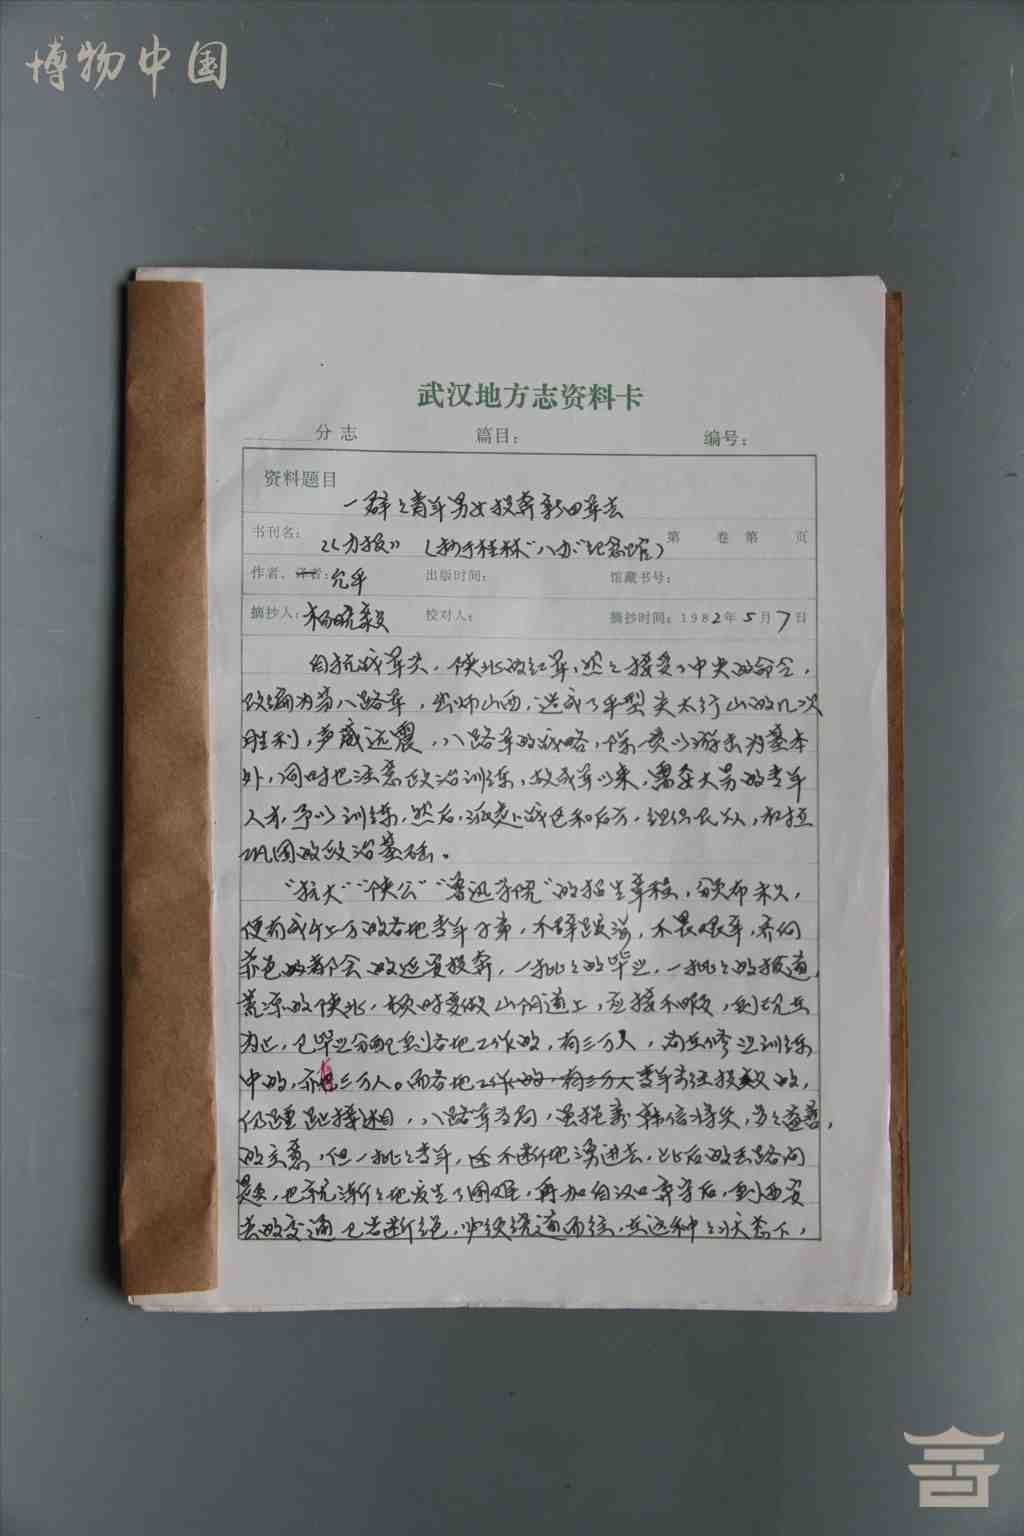 博物中国
武汉地方志资料卡
分志 篇目： 编号：
资料题目
一群群青年男女投奔新四军去
书刊名：《力报》（抄于桂林“八办”纪念馆） 第 卷 第 页
作者、译者：允平 出版时间： 馆藏书号：
摘抄人：杨晓毅 校对人： 摘抄时间：1982年5月7日
自抗战军兴，陕北的红军，毅然接受了中央的命令，
改编为第八路军，出师山西，造成了平型关太行山的几次
胜利，声威远震，八路军的战略，除一贯以游击为基本
外，同时也注意政治训练，故成军以来，需要大员的青年
人才，予以训练，然后，派赴战区和后方，组织民众，和
巩固政治基础。
“抗大”“陕公”“鲁迅学院”的招生章程，颁布未久，
便有成千上万的各地青年子弟，不辞跋涉，不畏艰辛，齐向
的延安投奔，一批批的毕业，一批批的报道，
荒凉的陕北，顿时变做山阴道上，应接不暇，到现在
为止，已毕业分配到各地工作的，有三万人，尚在修业训练
中的，亦三万人。而各地工作的，有三万人青年前往投效的，
仍踵趾相，八路军当局，虽抱着韩信将兵，多多益善，
的主意，但一批批青年，还不断地涌进去，此后的去路问
题，也就渐渐地发生了困难，再加自汉口弃守后，到西安
去的交通已告断绝，必须绕道而往，在这种状态下，